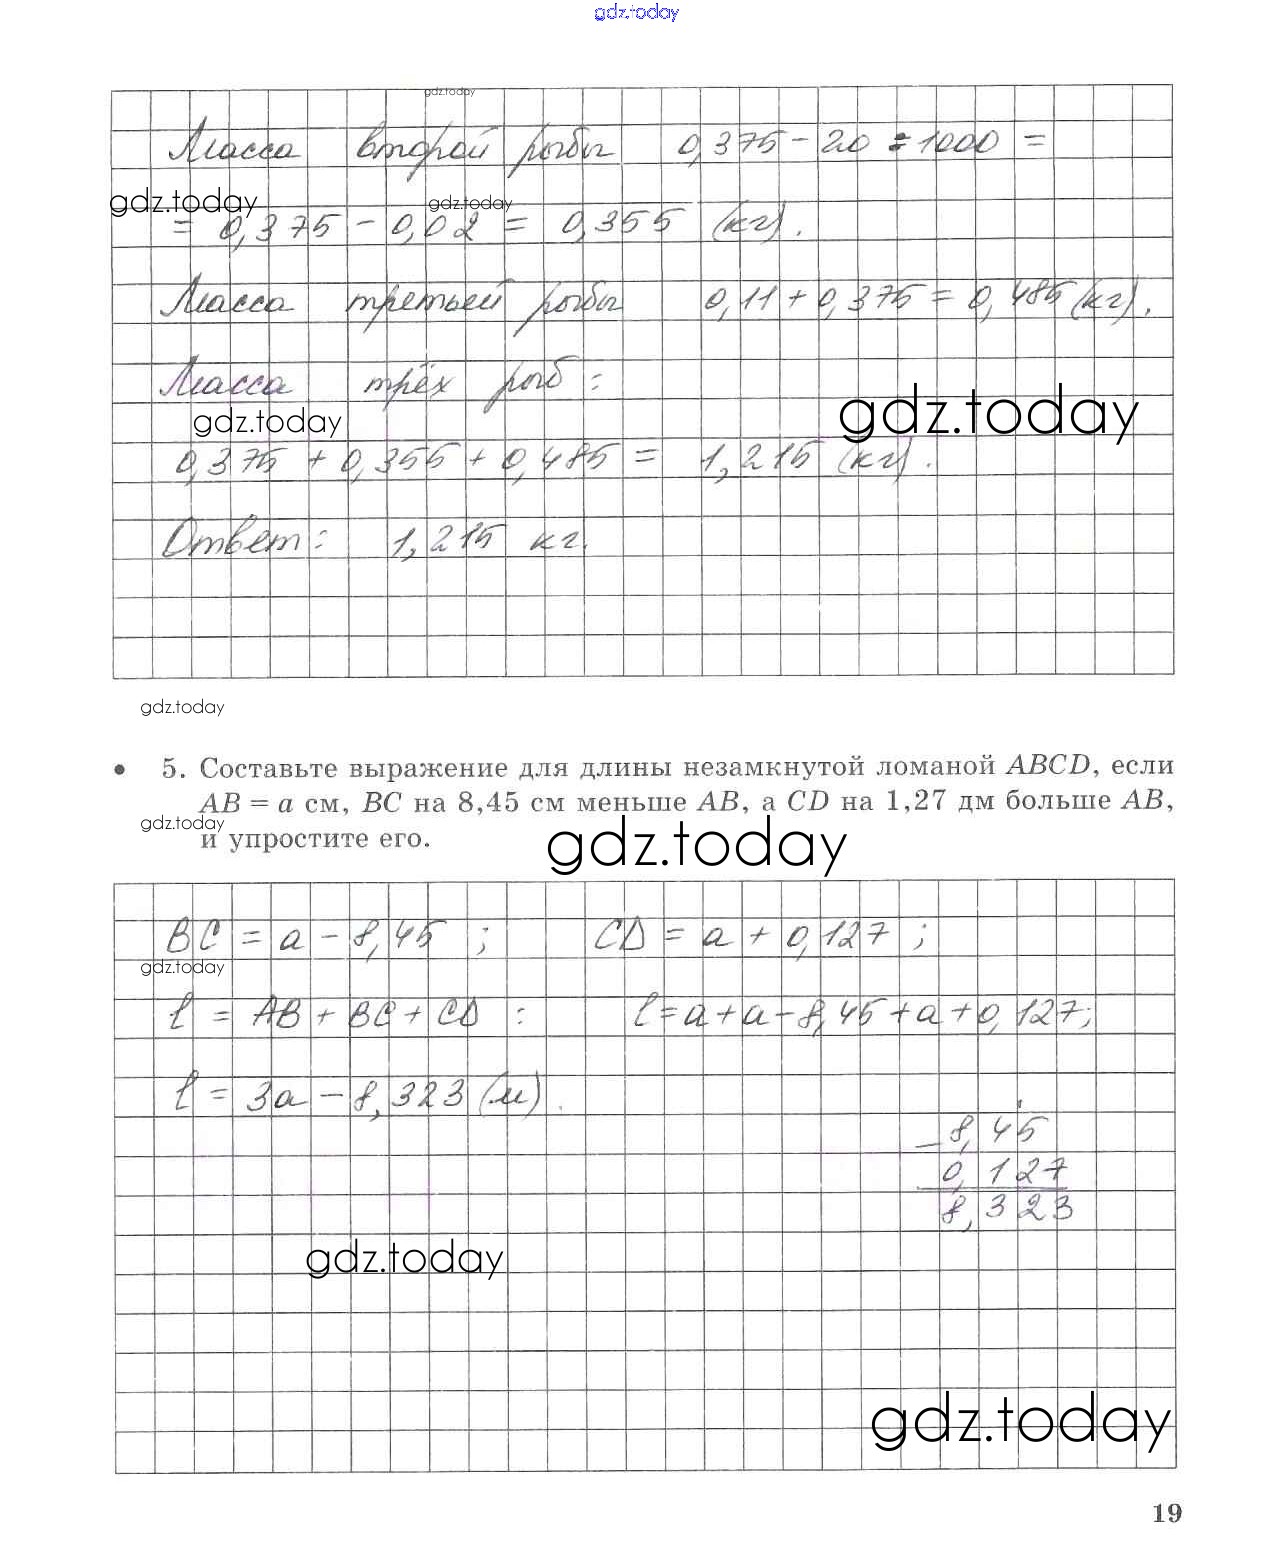 gdz.today
gdz.today
Масса второй рыбы 0,375 - 20 : 1000 =
gdz.today gdz.today
= 0,375 - 0,02 = 0,355 (кг).
Масса третьей рыбы 0,11 + 0,375 = 0,485 (кг).
Масса трёх рыб:
gdz.today gdz.today
0,375 + 0,355 + 0,485 = 1,215 (кг).
Ответ: 1,215 кг.
gdz.today
• 5. Составьте выражение для длины незамкнутой ломаной ABCD, если
AB = a см, BC на 8,45 см меньше AB, а CD на 1,27 дм больше AB,
gdz.today
и упростите его.
gdz.today
BC = a - 8,45 ; CD = a + 0,127 ;
gdz.today
l = AB + BC + CD : l = a + a - 8,45 + a + 0,127;
l = 3a - 8,323 (м).
- 8,45
0,127
8,323
gdz.today
gdz.today
19